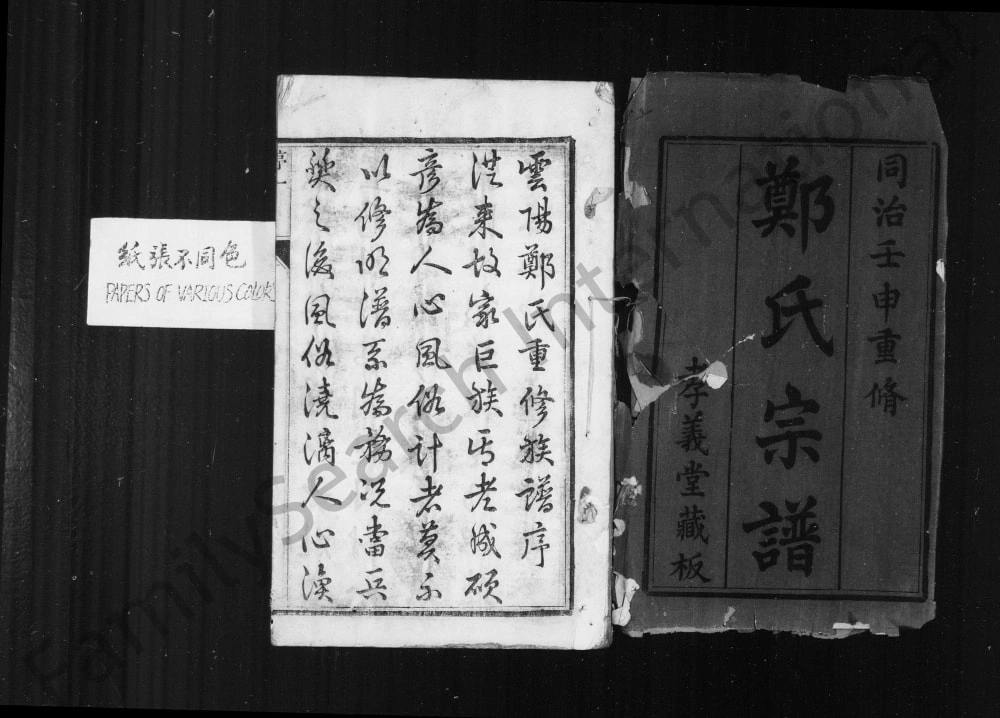 同治壬申重脩
鄭氏宗譜
孝義堂藏板
雲陽鄭氏重修族譜序
從來故家巨族與老成碩
彥為人心風俗計者莫不
以修明譜系為務況當兵
燹之後風俗澆漓人心渙
紙張不同色
PAPERS OF VARIOUS COLOR
FamilySearch International